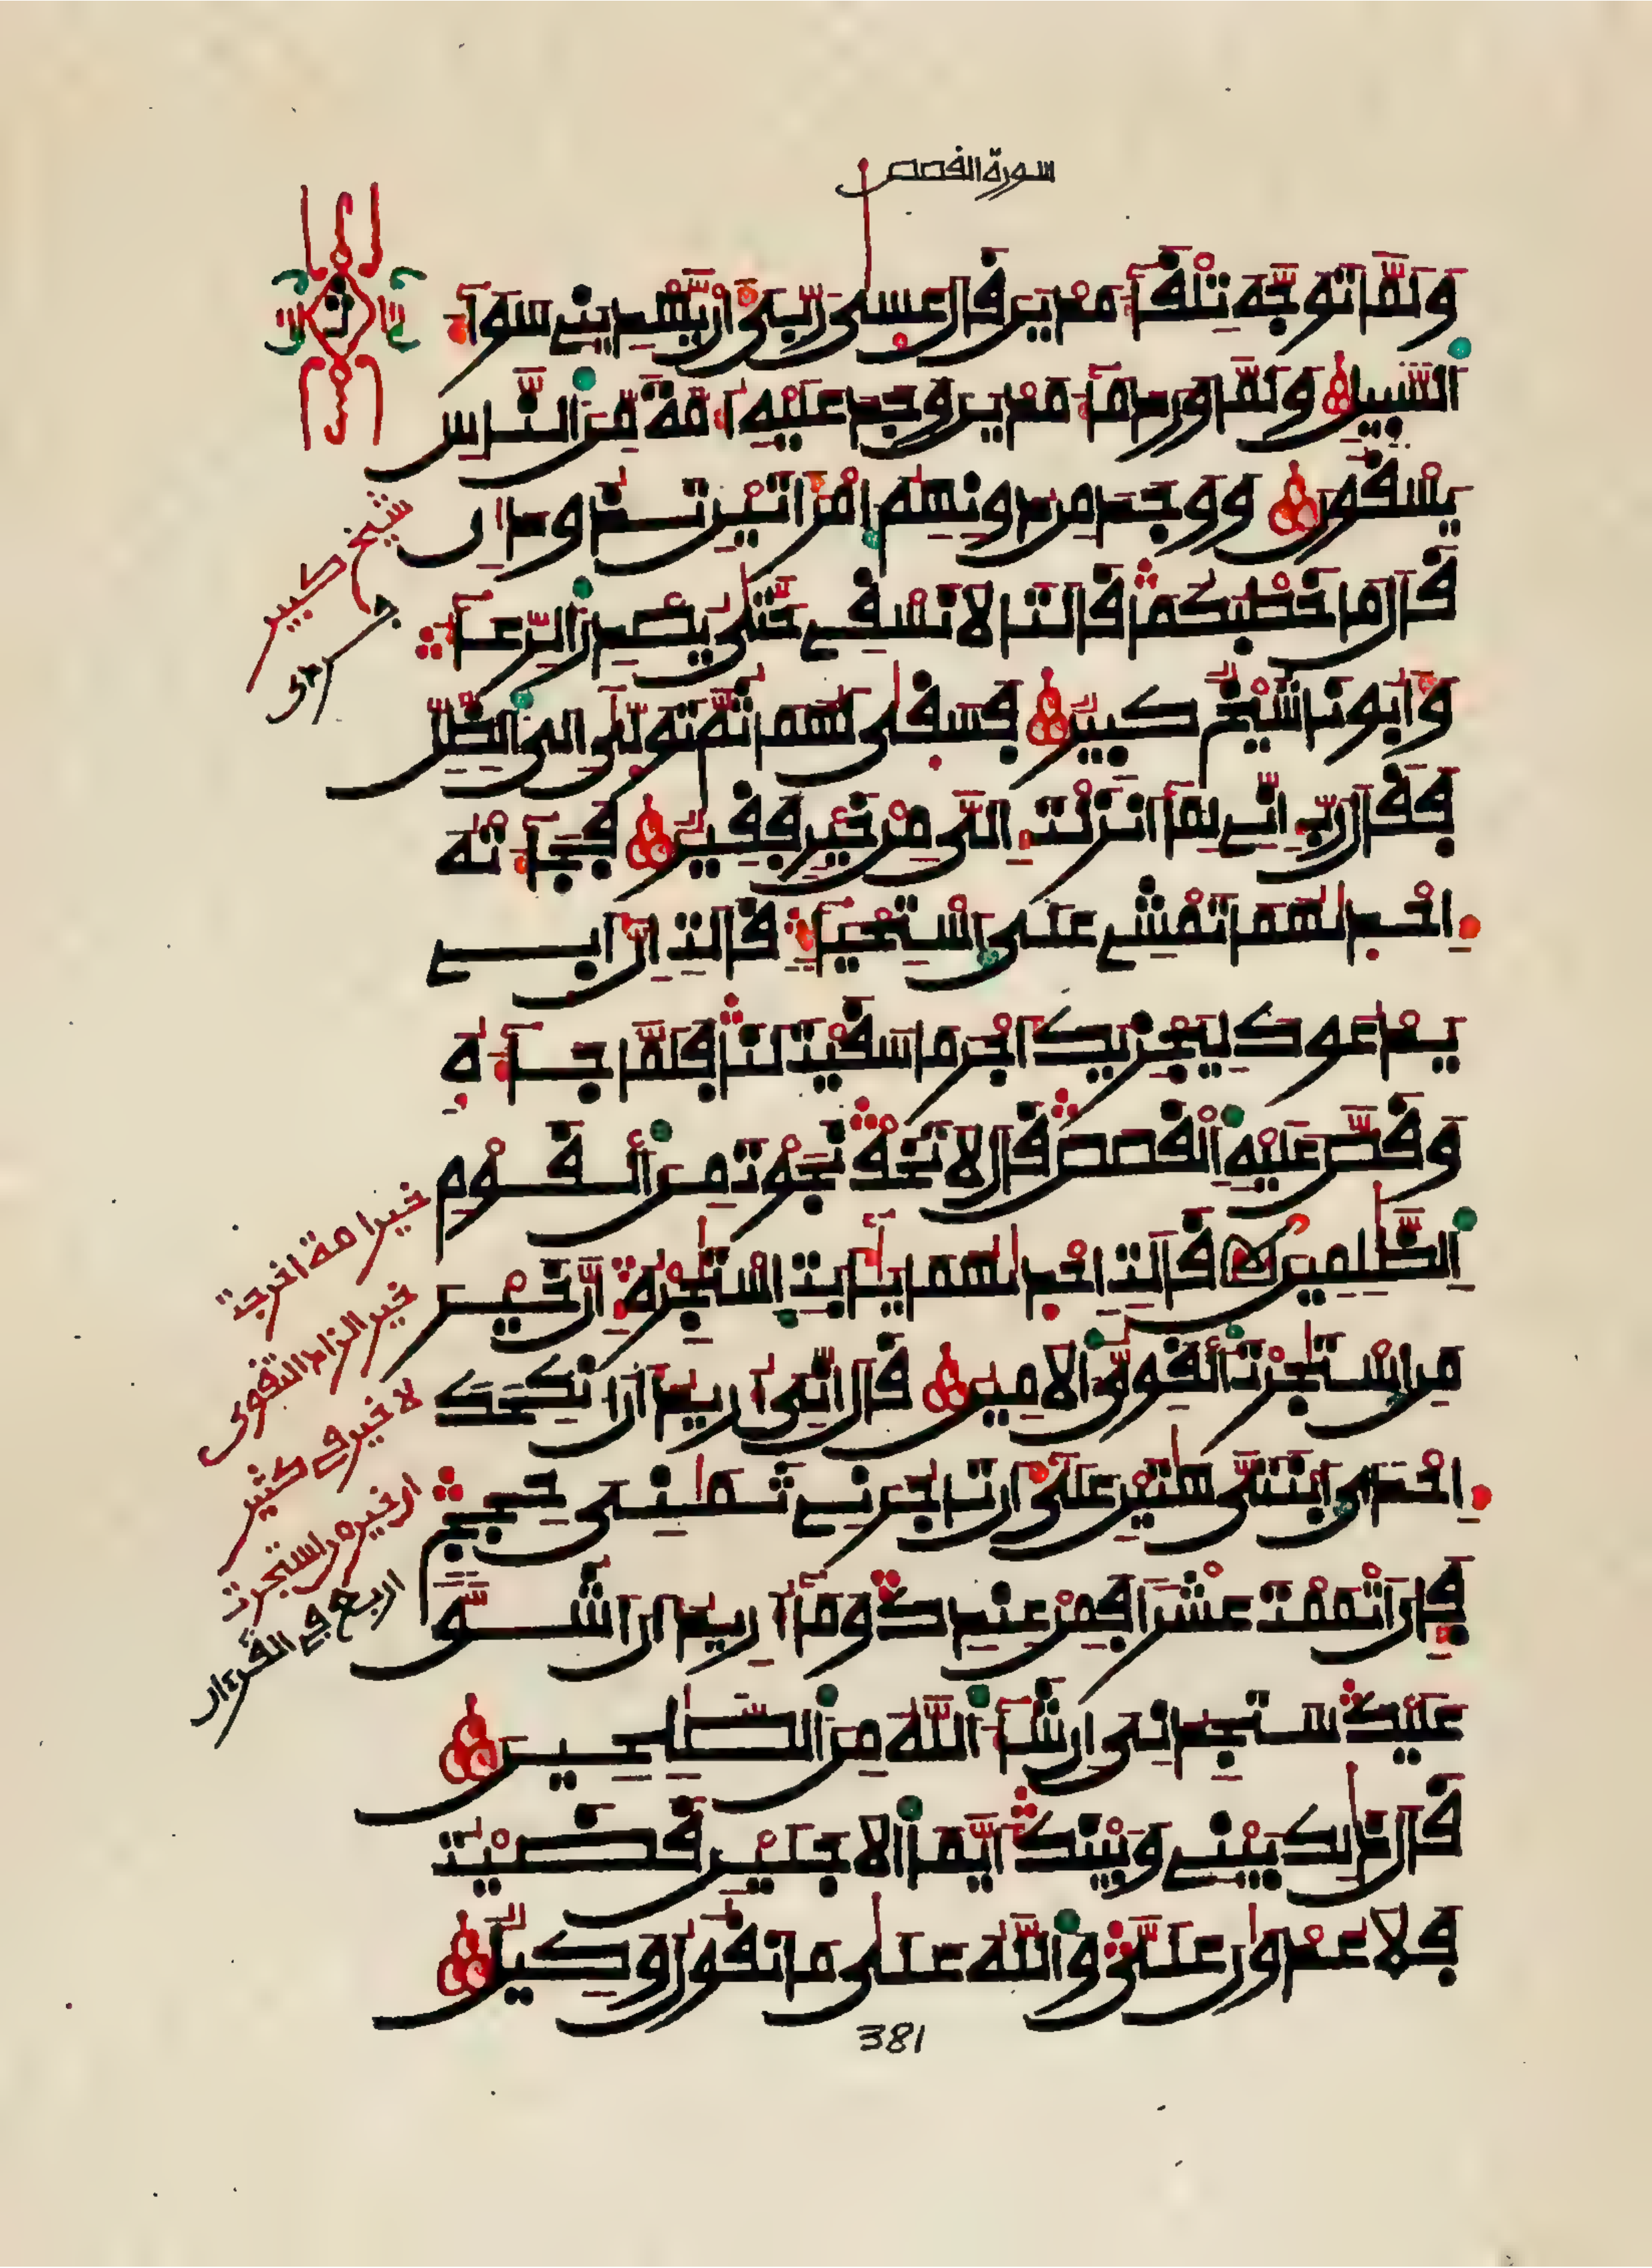 سورة القصص
ولما توجه تلقآء مدين قال عسى ربي أن يهديني سوآء
السبيل ولما ورد مآء مدين وجد عليه أمة من الناس
يسقون ووجد من دونهم امرأتين تذودان
قال ما خطبكما قالتا لا نسقي حتى يصدر الرعآء
وأبونا شيخ كبير فسقى لهما ثم تولى إلى الظل
فقال رب إني لمآ أنزلت إلي من خير فقير فجآءته
إحدىهما تمشي على استحيآء قالت إن أبي
يدعوك ليجزيك أجر ما سقيت لنا فلما جآءه
وقص عليه القصص قال لا تخف نجوت من القوم
الظلمين قالت إحدىهما يأبت استجره إن خير
من استجرت القوي الامين قال إني أريد أن أنكحك
إحدى ابنتي هتين على أن تاجرني ثمني حجج
فإن أتممت عشرا فمن عندك ومآ أريد أن أشق
عليك ستجدني إن شآء الله من الصلحين
قال ذلك بيني وبينك أيما الاجلين قضيت
فلا عدون علي والله على ما نقول وكيل
شيخ كبير
خير امة اخرجت
خير الزاد التقوى
لا خير في كثير
ان خير من استجرت
اربع في القرءان
381